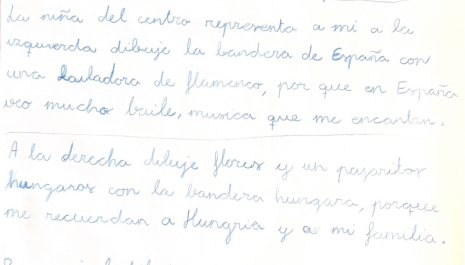 La niña del centro representa a mi a la
izquierda dibuje la bandera de España con
una bailadora de flamenco, por que en España
veo mucho baile, musica que me encantan.
A la derecha dibuje flores y un pajaritos
hungaros con la bandera hungara, porque
me recuerdan a Hungria y a mi familia.